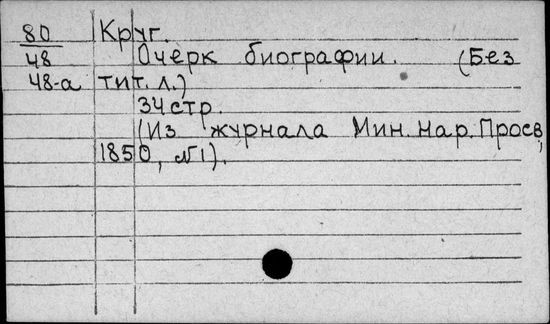 80 Круг.
48 Очерк биографии. (Без
48-а тит. л.)
34 стр.
(Из журнала Мин. Нар. Просв,
1850, №1).